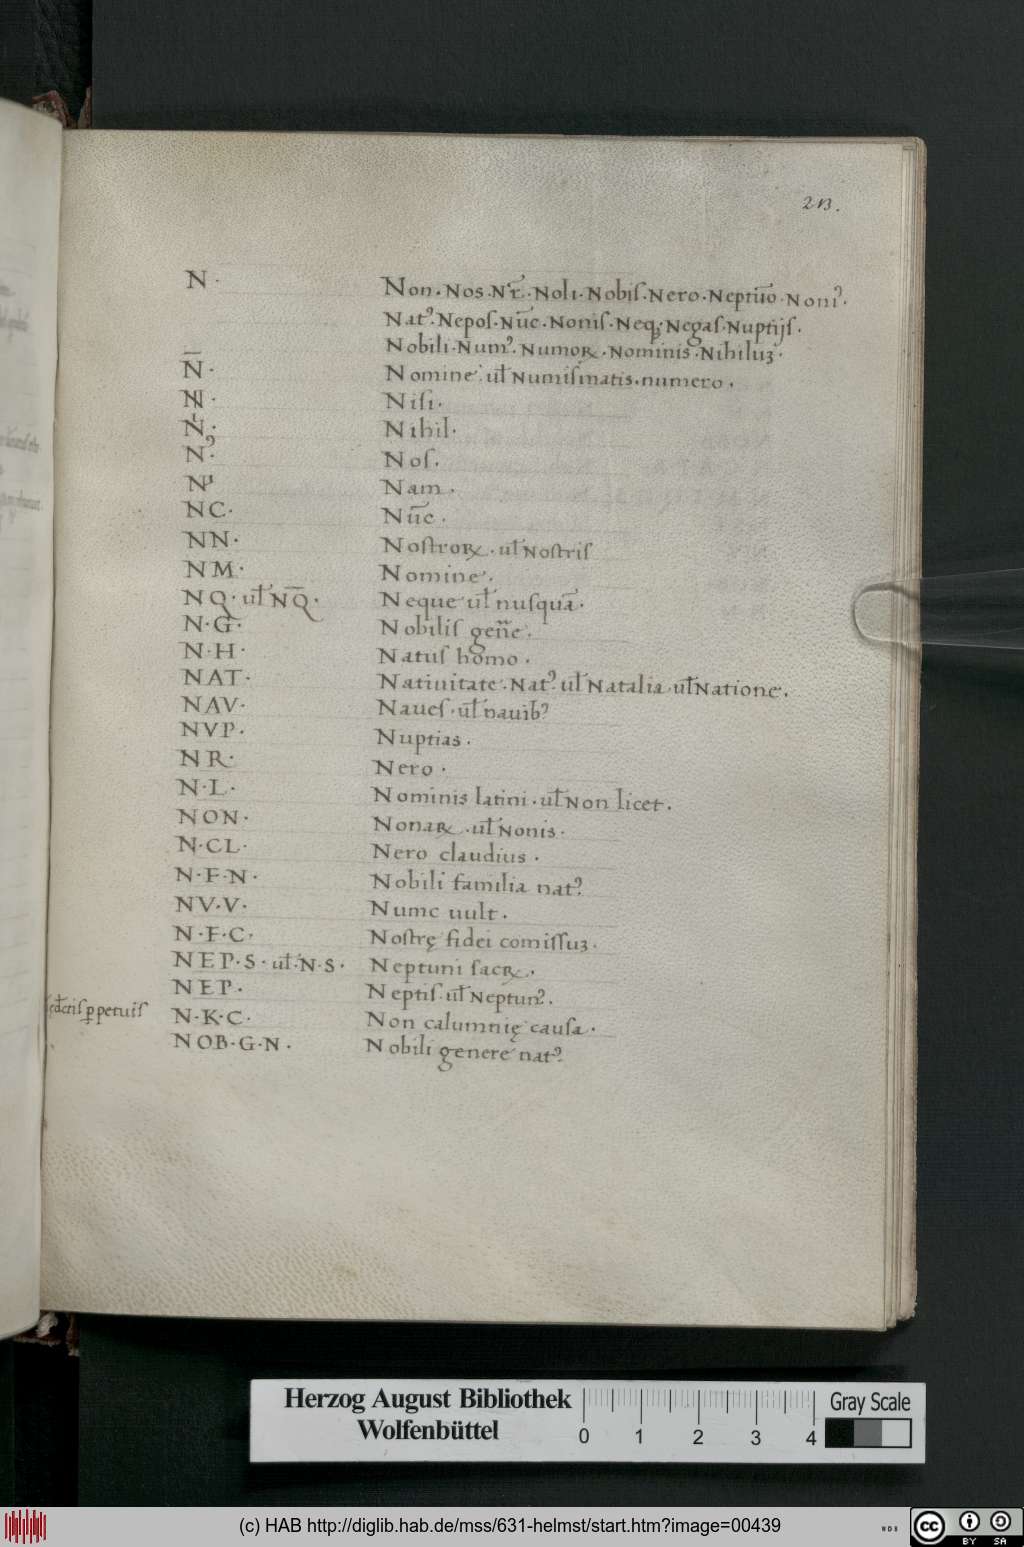 213.
N· Non·Nos·Nr̄·Noli·Nobis·Nero·Neptūo·Noniꝰ·
Natꝰ·Nepos·Nūc·Nonis·Neqꝫ·Negas·Nuptijs·
Nobili·Numꝰ·Numoꝝ·Nominis·Nihiluꝫ·
N̄· Nomine·ul̄ Numismatis·numero·
Nisi·
Nihil·
Nꝰ· Nos·
N Nam·
NC· Nūc·
NN· Nostroꝝ·ul̄ Nostris
NM· Nomine·
NQ·ul̄ NQ̄· Neque ul̄ nusquā·
N·G· Nobilis gen̄e·
N·H· Natus homo·
NAT· Natiuitate·Natꝰ·ul̄ Natalia·ul̄ Natione·
NAV· Naues·ul̄ nauibꝰ
NVP· Nuptias·
NR· Nero·
N·L· Nominis latini·ul̄ Non licet·
NON· Nonaꝝ·ul̄ Nonis·
N·CL· Nero claudius·
N·F·N· Nobili familia natꝰ·
NV·V· Numc uult·
N·F·C· Nostrę fidei comissuꝫ·
NEP·S·ul̄·N·S· Neptuni sacꝝ·
NEP· Neptis·ul̄ Neptunꝰ·
ꝑpetuis
N·K·C· Non calumnię causa·
NOB·G·N· Nobili genere natꝰ·
Herzog August Bibliothek
Wolfenbüttel
0 1 2 3 4
Gray Scale
(c) HAB http://diglib.hab.de/mss/631-helmst/start.htm?image=00439
WDB
cc BY SA